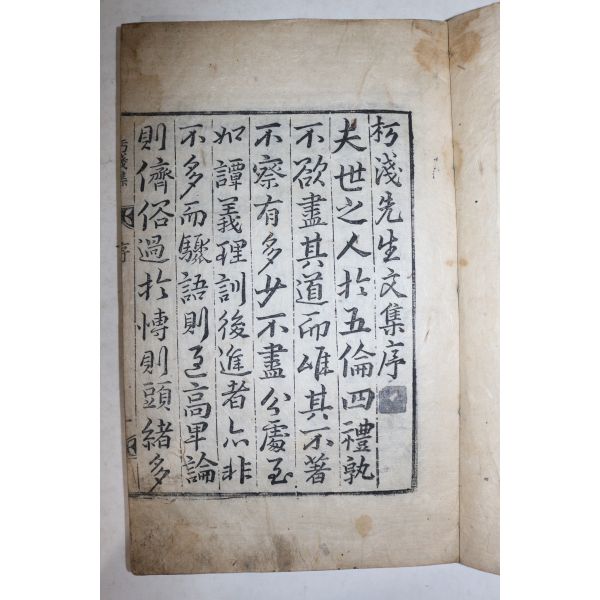 朽淺先生文集序
夫世之人於五倫四禮孰
不欲盡其道而唯其不著
不察有多少不盡分處至
如譚義理訓後進者亦非
不多而驟語則高卑論
則儕俗過於慱則頭緒多
朽淺集 序 一